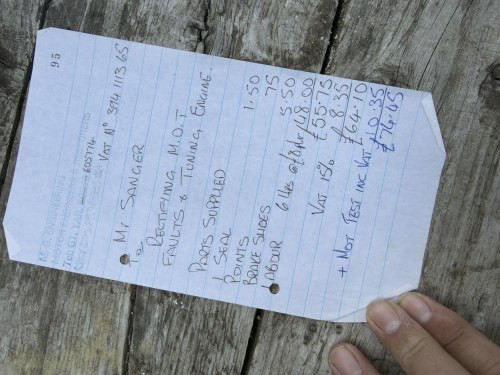 95
600774.
VAT Nº 394 1113 65
Mr SANGER
To
RECTIFYING M.O.T
FAULTS & TUNING ENGINE.
PARTS SUPPLIED
1 SEAL 1.50
POINTS 75
BRAKE SHOES 5.50
LABOUR 6 Hrs @ £8/Hr 48.00
£55.75
VAT 15% £8.35
£64.10
+ MOT TEST INC VAT £10.35
£74.45